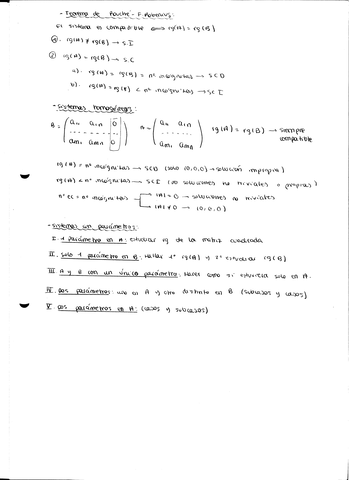 - Teorema de Rouché - Frobenius:
El sistema es compatible ⟺ rg(A) = rg(B)
① rg(A) ≠ rg(B) → S.I
② rg(A) = rg(B) → S.C
a). rg(A) = rg(B) = nº incógnitas → SCD
b). rg(A) = rg(B) < nº incógnitas → SCI
- Sistemas homogéneos:
B = ( a11 a1n 0 A = ( a11 a1n rg(A) = rg(B) → siempre compatible
........ ........
am1 amn 0 ) am1 amn )
rg(A) = nº incógnitas → SCD (solo (0,0,0) → solución impropia)
rg(A) < nº incógnitas → SCI (∞ soluciones no triviales o propias)
nº ec = nº incógnitas → |A| = 0 → soluciones no triviales
→ |A| ≠ 0 → (0,0,0)
- Sistemas un parámetro:
I. 1 parámetro en A: estudiar rg de la matriz cuadrada
II. Solo 1 parámetro en B: Hallar 1º rg(A) y 2º estudiar rg(B)
III. A y B con un único parámetro: Hacer como si estuviera solo en A.
IV. Dos parámetros: uno en A y otro distinto en B (subcasos y casos)
V. Dos parámetros en A: (casos y subcasos)